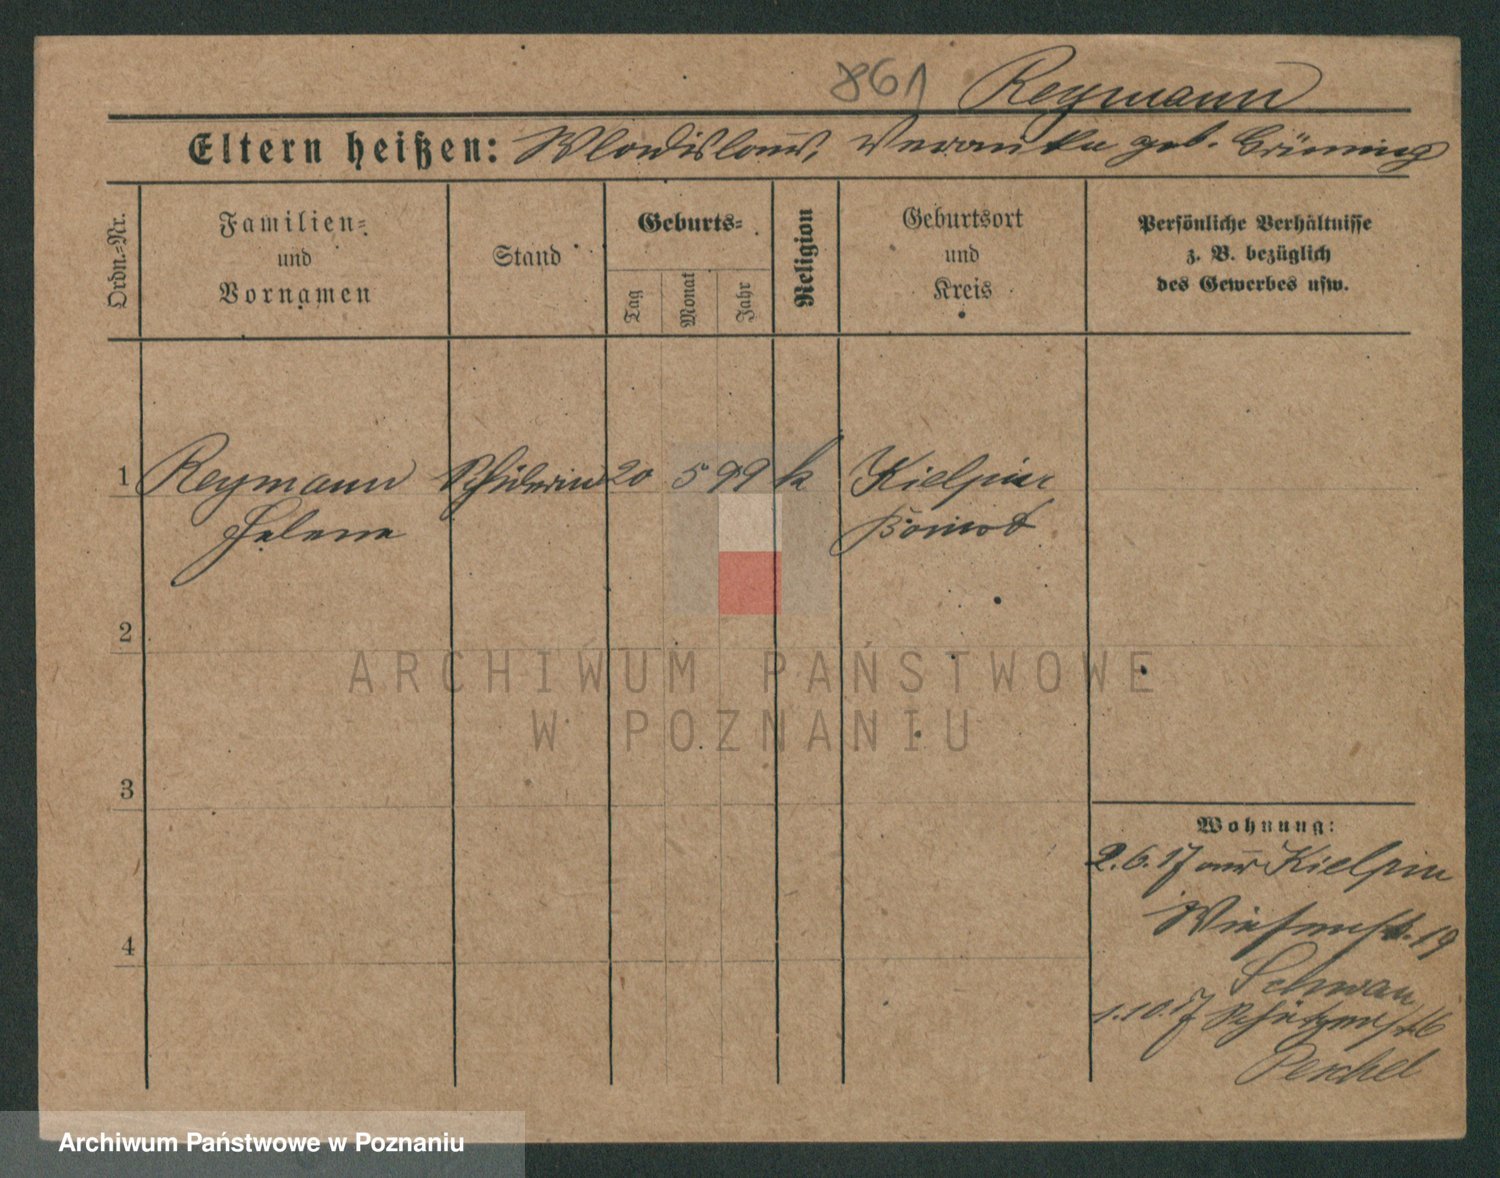 861 Reymann
Eltern heißen: Wladislaus, Veronika geb. Brüning
Ordn.-Nr.
Familien-
und
Vornamen
Stand
Geburts-
Tag
Monat
Jahr
Religion
Geburtsort
und
Kreis
Persönliche Verhältnisse
z. B. bezüglich
des Gewerbes usw.
1 Reymann Schülerin 20 5 99 k Kielpin
Helene Bomst
2
ARCHIWUM PAŃSTWOWE
W POZNANIU
3
Wohnung:
2.6.17 aus Kielpin
Wiesenstr. 19
Schwan
4
1.10.17 Schützenstr. 6
Peschel
Archiwum Państwowe w Poznaniu